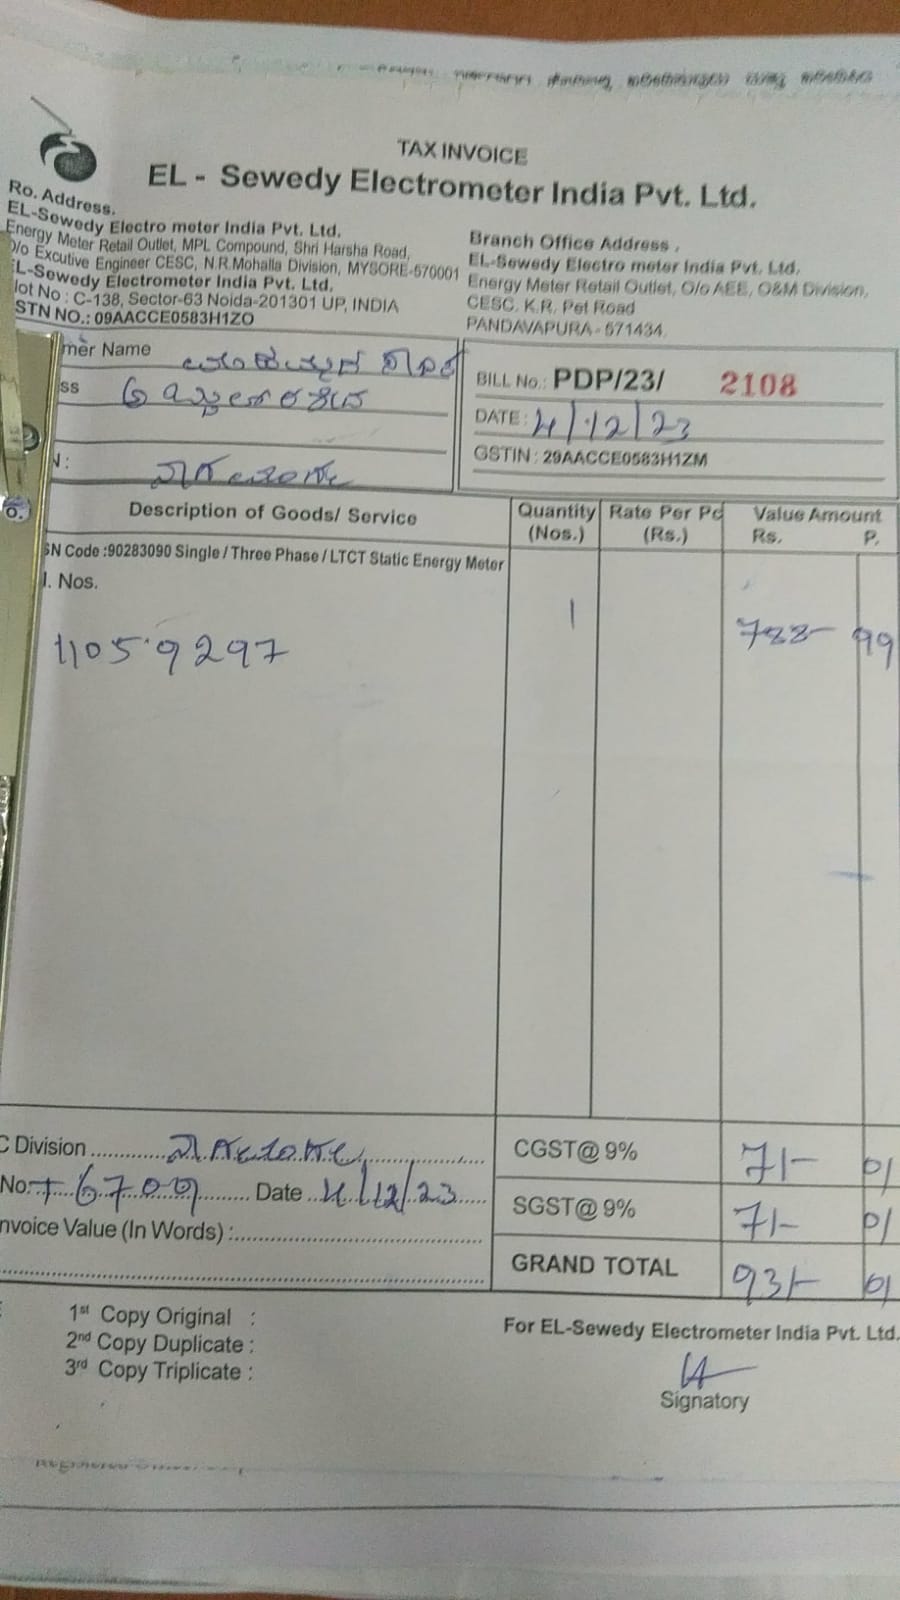 TAX INVOICE
EL - Sewedy Electrometer India Pvt. Ltd.
Ro. Address.
EL-Sewedy Electro meter India Pvt. Ltd.
Energy Meter Retail Outlet, MPL Compound, Shri Harsha Road,
o/o Excutive Engineer CESC, N.R.Mohalla Division, MYSORE-570001
EL-Sewedy Electrometer India Pvt. Ltd.
lot No : C-138, Sector-63 Noida-201301 UP, INDIA
STN NO.: 09AACCE0583H1ZO
Branch Office Address .
EL-Sewedy Electro meter India Pvt. Ltd.
Energy Meter Retail Outlet, O/o AEE, O&M Division,
CESC. K.R. Pet Road
PANDAVAPURA - 571434.
mer Name
ss
N :
BILL No.: PDP/23/ 2108
DATE : 4/12/23
GSTIN : 29AACCE0583H1ZM
Description of Goods/ Service Quantity (Nos.) Rate Per Pc (Rs.) Value Amount Rs. P.
SN Code :90283090 Single / Three Phase / LTCT Static Energy Meter
l. Nos.
11059297 1 788- 99
C Division
CGST@ 9% 71- 01
No. T 6700 Date 4/12/23
SGST@ 9% 71- 01
nvoice Value (In Words) :
GRAND TOTAL 931- 01
1st Copy Original :
2nd Copy Duplicate :
3rd Copy Triplicate :
For EL-Sewedy Electrometer India Pvt. Ltd.
Signatory